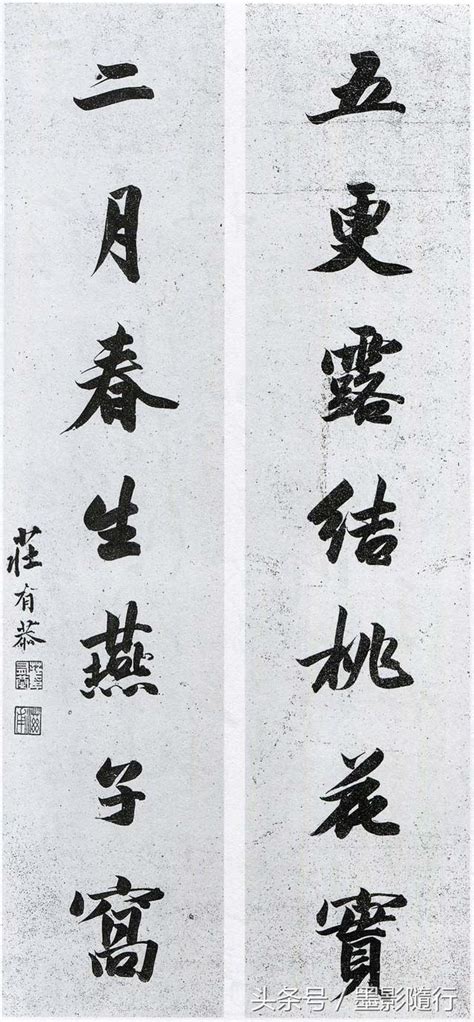 五更露結桃花實
二月春生燕子窩
莊有恭
头条号／墨影隨行